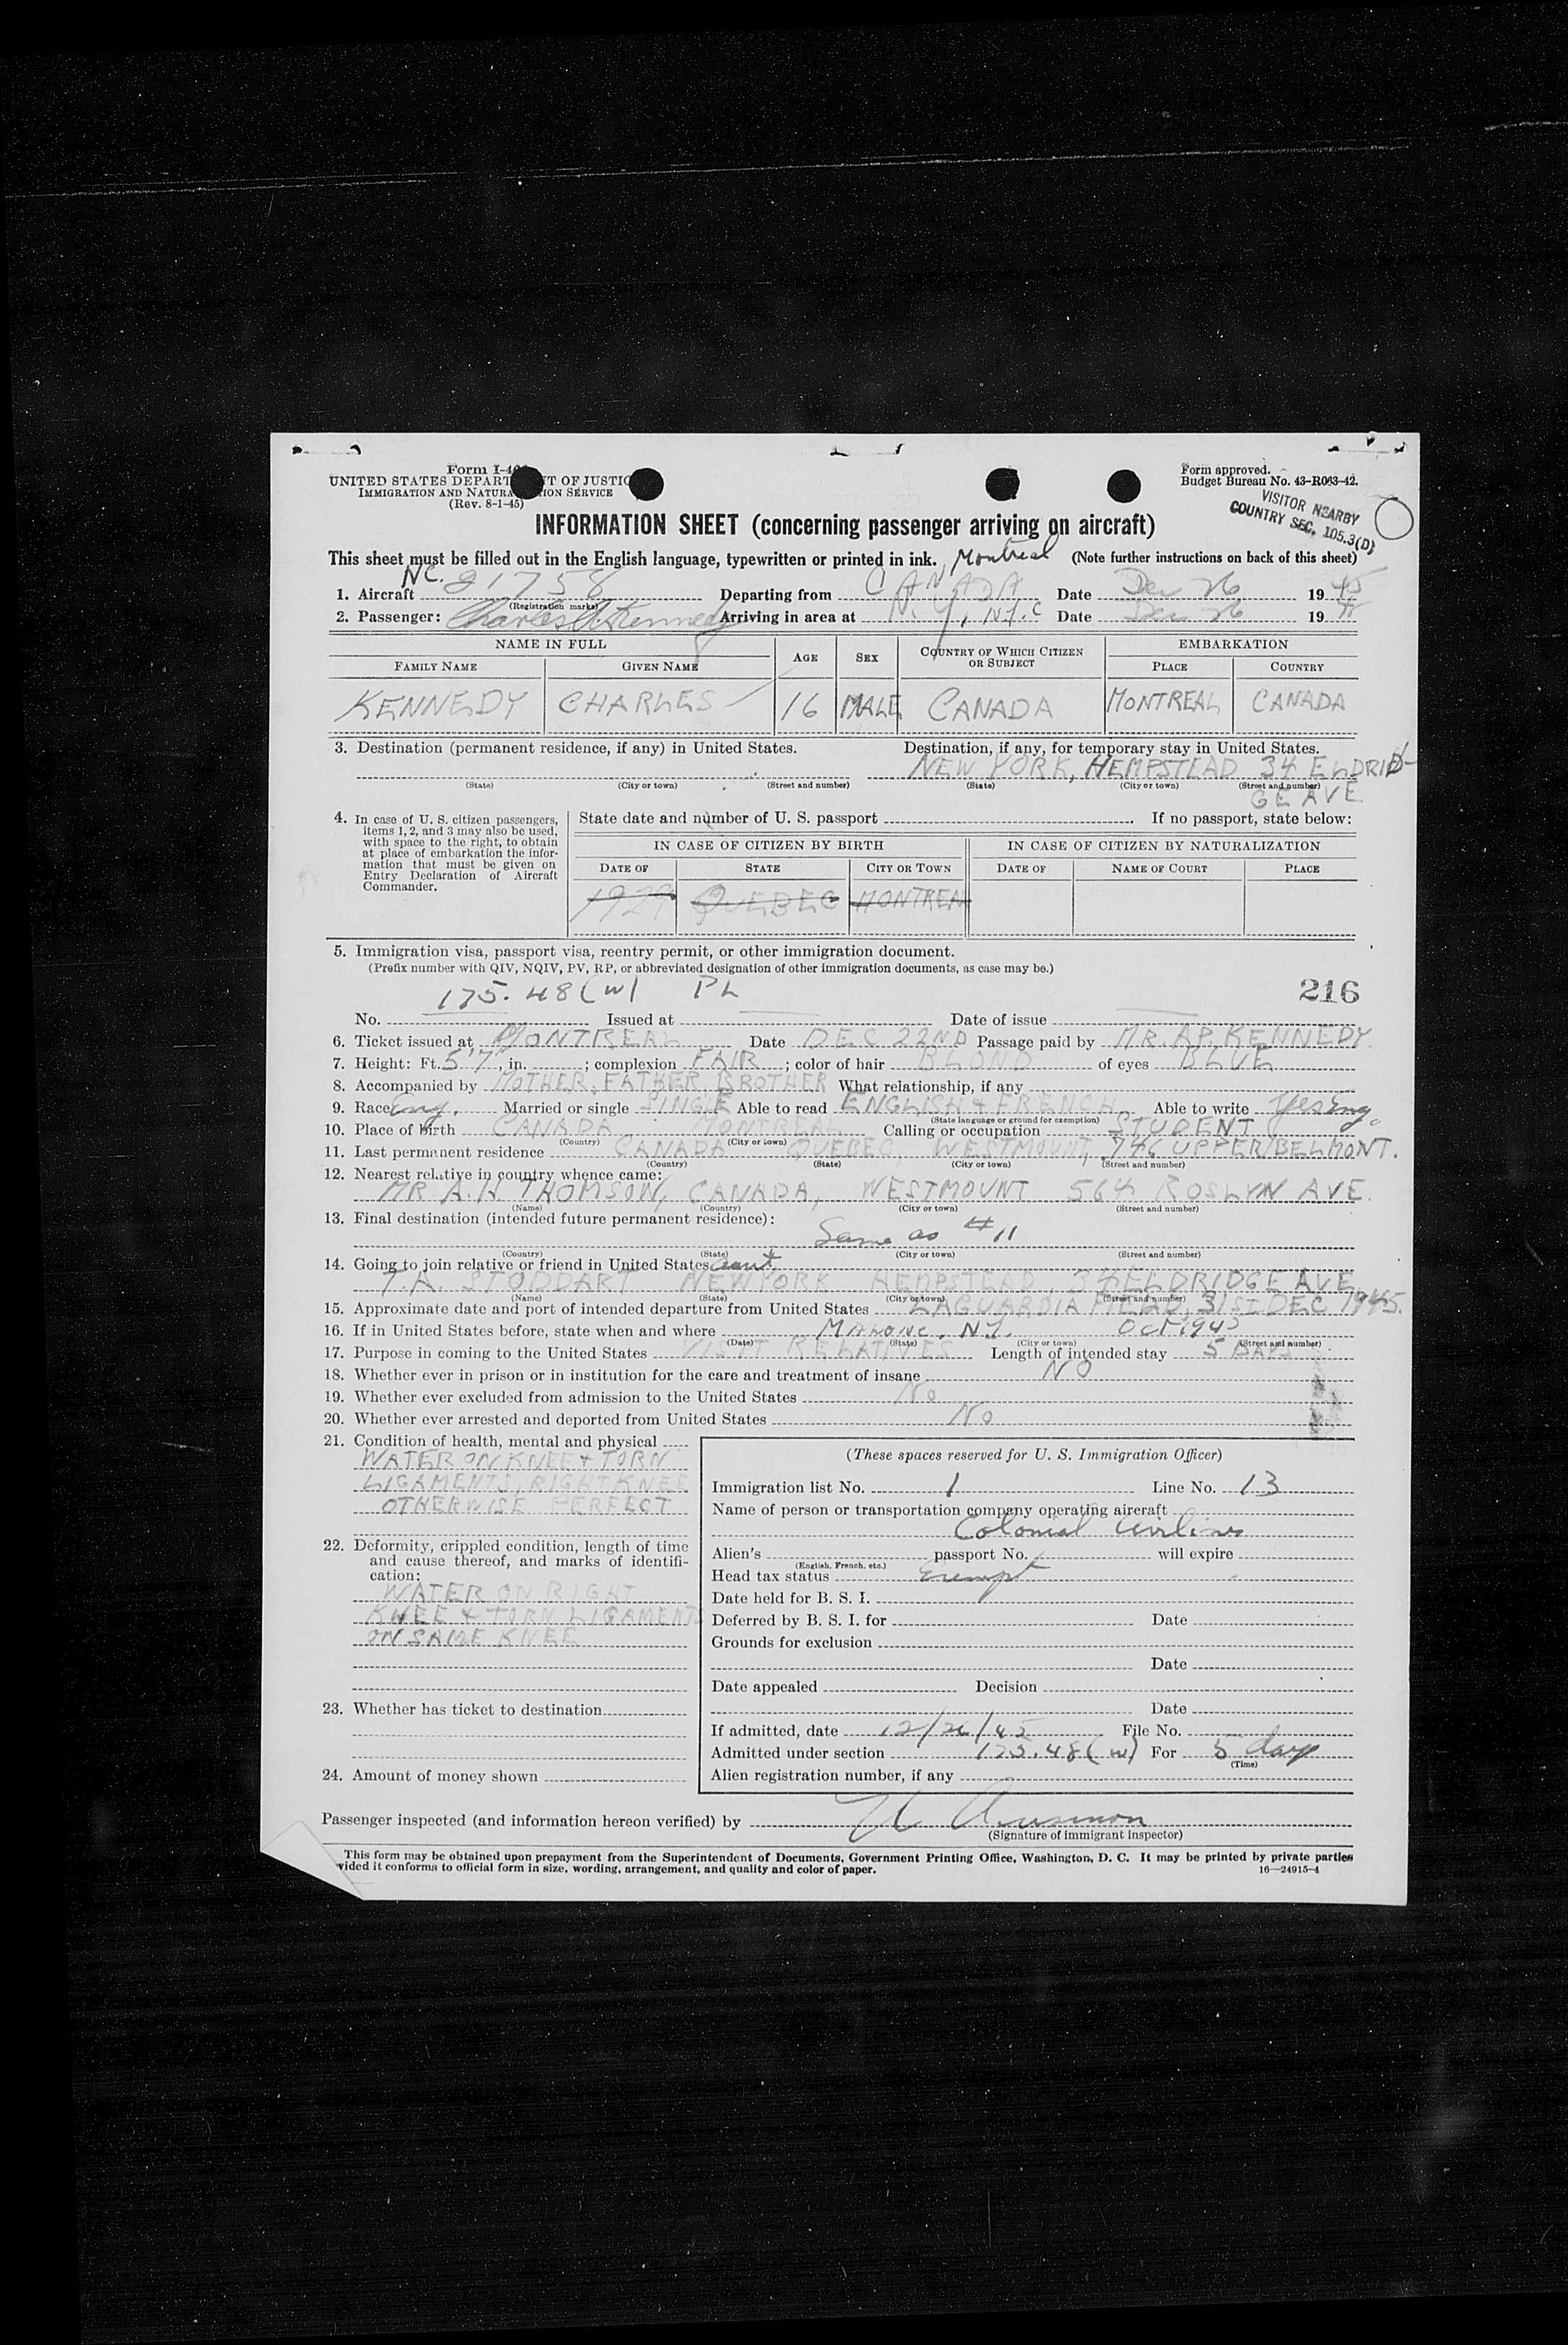 Form I-4
UNITED STATES DEPART T OF JUSTIC
IMMIGRATION AND NATURA ION SERVICE
(Rev. 8-1-45)
Form approved.
Budget Bureau No. 43-R063-42.
VISITOR NEARBY
COUNTRY SEC. 105.3(D)
INFORMATION SHEET (concerning passenger arriving on aircraft)
This sheet must be filled out in the English language, typewritten or printed in ink. Montreal (Note further instructions on back of this sheet)
1. Aircraft NC. 21758 Departing from CANADA Date Dec 26 19 45
(Registration marks)
2. Passenger: Charles Kennedy Arriving in area at N.Y., N.Y.C Date Dec 26 19
NAME IN FULL AGE SEX COUNTRY OF WHICH CITIZEN OR SUBJECT EMBARKATION
FAMILY NAME GIVEN NAME PLACE COUNTRY
KENNEDY CHARLES 16 MALE CANADA MONTREAL CANADA
3. Destination (permanent residence, if any) in United States. Destination, if any, for temporary stay in United States.
NEW YORK, HEMPSTEAD 34 ELDRID-
(State) (City or town) (Street and number) (State) (City or town) (Street and number)
GE AVE
4. In case of U. S. citizen passengers, items 1, 2, and 3 may also be used, with space to the right, to obtain at place of embarkation the information that must be given on Entry Declaration of Aircraft Commander.
State date and number of U. S. passport . If no passport, state below:
IN CASE OF CITIZEN BY BIRTH IN CASE OF CITIZEN BY NATURALIZATION
DATE OF STATE CITY OR TOWN DATE OF NAME OF COURT PLACE
1929 QUEBEC MONTREAL
5. Immigration visa, passport visa, reentry permit, or other immigration document.
(Prefix number with QIV, NQIV, PV, RP, or abbreviated designation of other immigration documents, as case may be.)
175.48(w) PL 216
No. Issued at Date of issue
6. Ticket issued at MONTREAL Date DEC 22ND Passage paid by MR. A.P. KENNEDY
7. Height: Ft. 5'7", in. ; complexion FAIR ; color of hair BLOND of eyes BLUE
8. Accompanied by MOTHER, FATHER, BROTHER What relationship, if any
9. Race Eng. Married or single SINGLE Able to read ENGLISH & FRENCH Able to write Yes Eng.
(State language or ground for exemption)
10. Place of birth CANADA MONTREAL Calling or occupation STUDENT
(Country) (City or town)
11. Last permanent residence CANADA QUEBEC, WESTMOUNT, 746 UPPER BELMONT.
(Country) (State) (City or town) (Street and number)
12. Nearest relative in country whence came:
MR A.H. THOMSON, CANADA, WESTMOUNT 564 ROSLYN AVE.
(Name) (Country) (City or town) (Street and number)
13. Final destination (intended future permanent residence):
Same as #11
(Country) (State) (City or town) (Street and number)
14. Going to join relative or friend in United States aunt
T.A. STODDART NEW YORK HEMPSTEAD, 34 ELDRIDGE AVE
(Name) (State) (City or town) (Street and number)
15. Approximate date and port of intended departure from United States LAGUARDIA FIELD, 31ST DEC 1945.
16. If in United States before, state when and where MALONE, N.Y. Oct 1945
(Date) (State) (City or town) (Street and number)
17. Purpose in coming to the United States VISIT RELATIVES Length of intended stay 5 DAYS
18. Whether ever in prison or in institution for the care and treatment of insane NO
19. Whether ever excluded from admission to the United States No
20. Whether ever arrested and deported from United States No
21. Condition of health, mental and physical
WATER ON KNEE & TORN
LIGAMENTS, RIGHT KNEE
OTHERWISE PERFECT
22. Deformity, crippled condition, length of time and cause thereof, and marks of identification:
WATER ON RIGHT
KNEE & TORN LIGAMENTS
ON SAME KNEE
23. Whether has ticket to destination
24. Amount of money shown
(These spaces reserved for U. S. Immigration Officer)
Immigration list No. 1 Line No. 13
Name of person or transportation company operating aircraft
Colonial Airlines
Alien's passport No. will expire
(English, French, etc.)
Head tax status Exempt
Date held for B. S. I.
Deferred by B. S. I. for Date
Grounds for exclusion
Date
Date appealed Decision
Date
If admitted, date 12/26/45 File No.
Admitted under section 175.48(w) For 5 days
(Time)
Alien registration number, if any
Passenger inspected (and information hereon verified) by
(Signature of immigrant inspector)
This form may be obtained upon prepayment from the Superintendent of Documents, Government Printing Office, Washington, D. C. It may be printed by private parties
vided it conforms to official form in size, wording, arrangement, and quality and color of paper. 16—24915-4